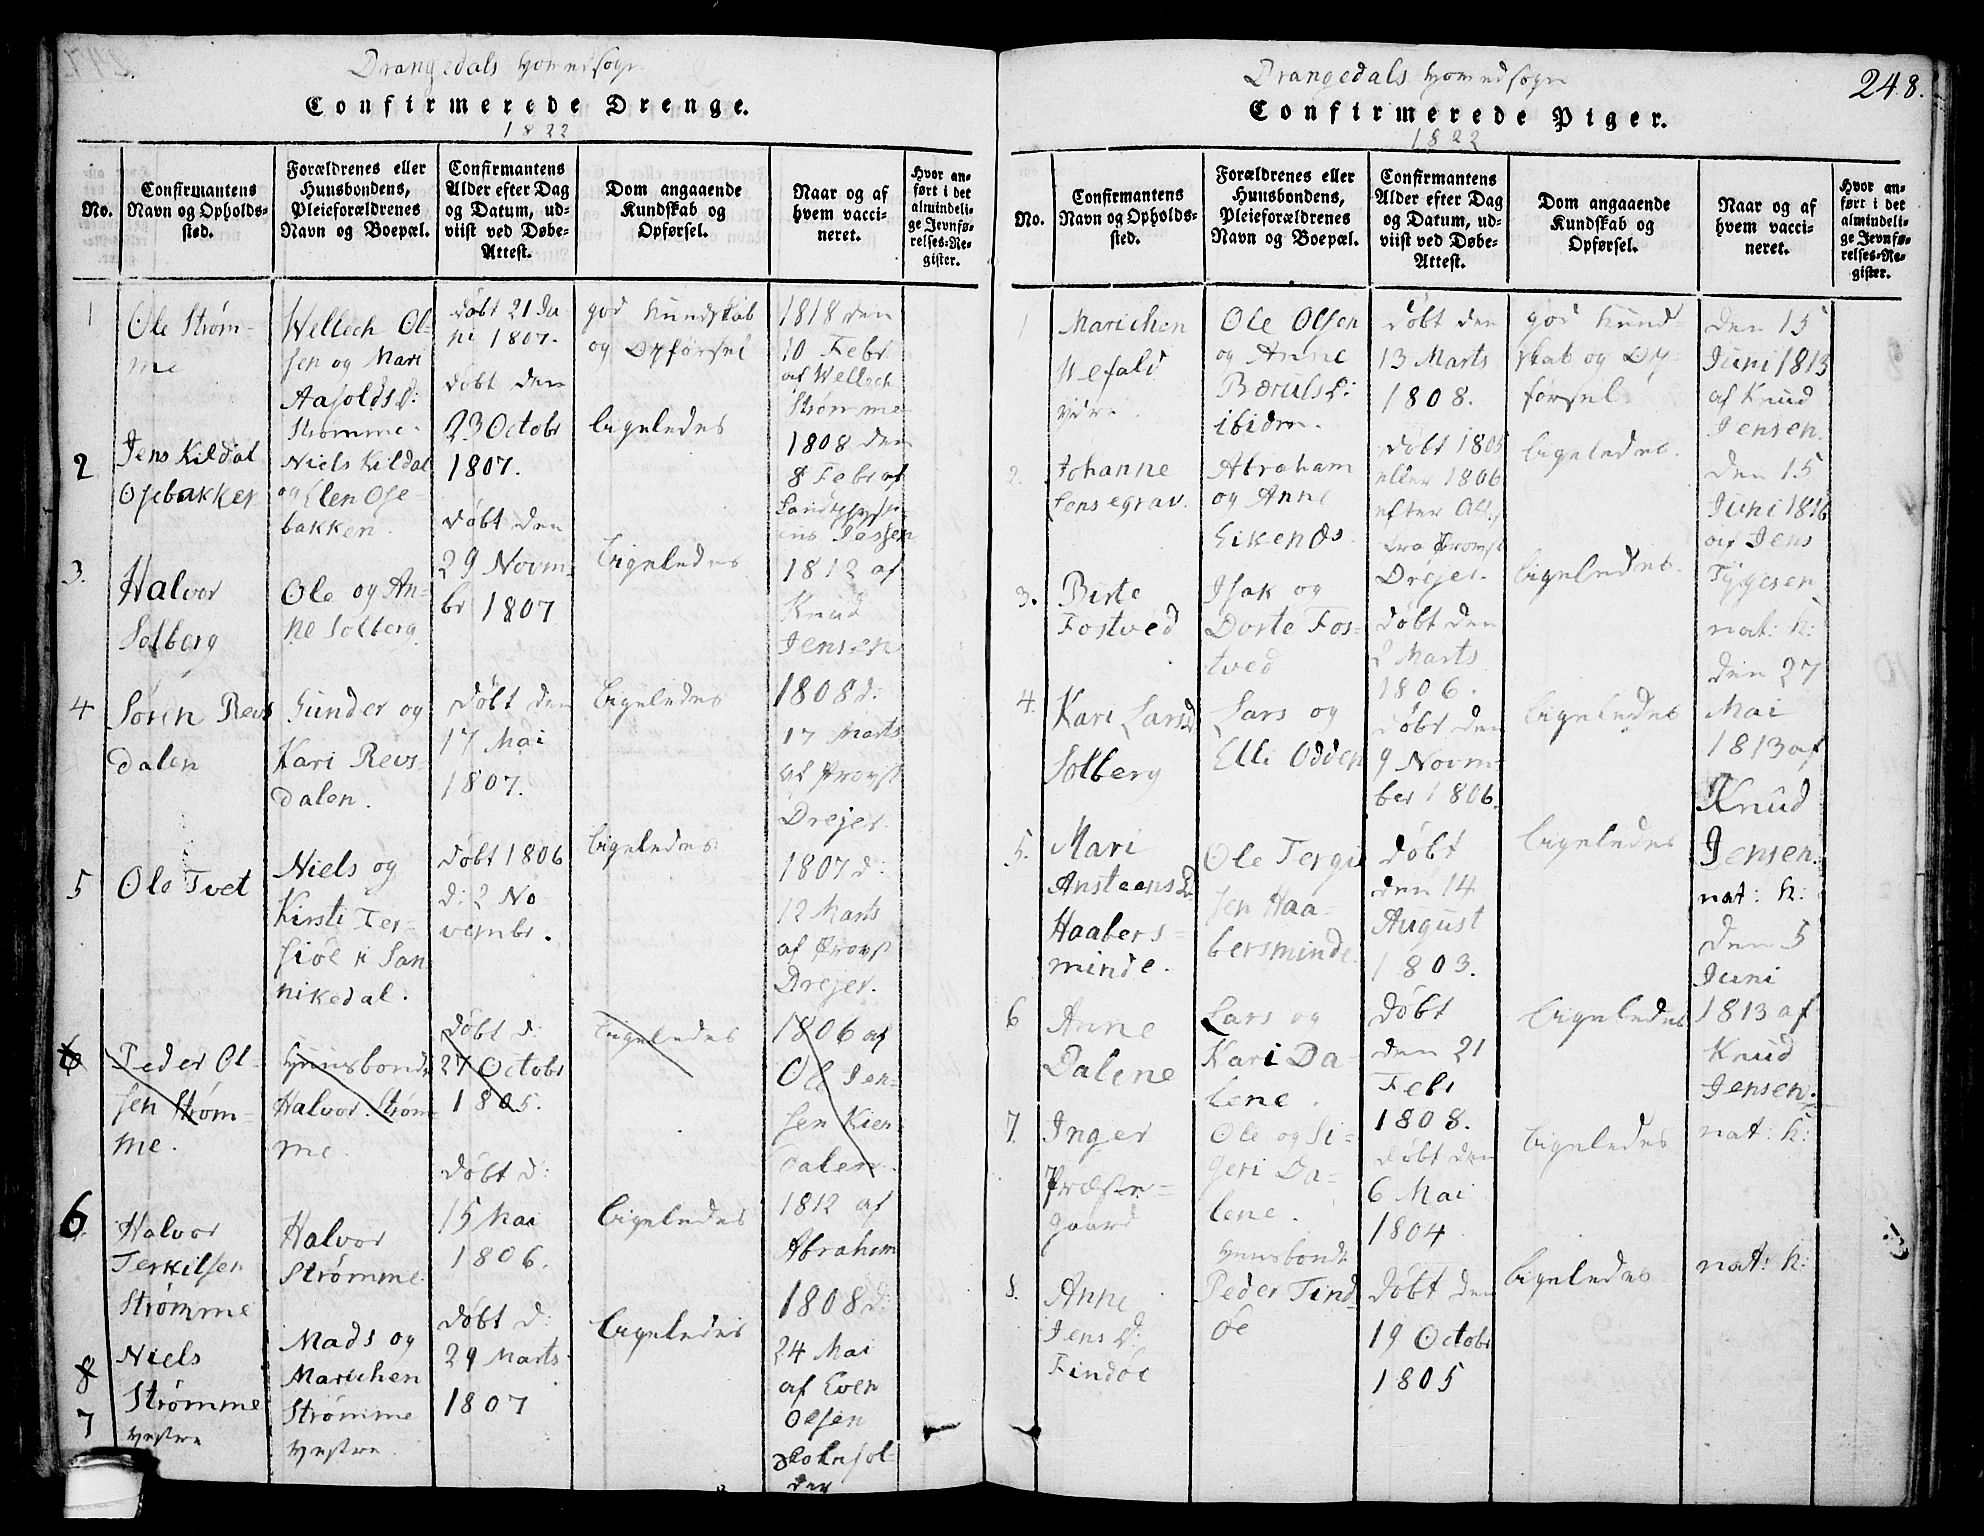 Drangedals Hovedsogn
Confirmerede Drenge.
1822
No.
Confirmantens
Navn og Opholds-
sted.
Forældrenes eller
Huusbondens,
Pleieforældrenes
Navn og Boepæl.
Confirmantens
Alder efter Dag
og Datum, ud-
viist ved Døbe-
Attest.
Dom angaaende
Kundskab og
Opførsel.
Naar og af
hvem vacci-
neret.
Hvor an-
ført i det
almindeli-
ge Jevnfø-
relses-Re-
gister.
1
Ole Strøm-
me
Wellech Ol-
sen og Mari
Aasolds D:
Strømme
døbt 21 Ju
ni 1807.
god Kundskab
og Opførsel
1818 den
10 Febr
af Wellech
Strømme
2
Jens Kildal
Osebakken
Niels Kildal
og Elen Ose-
bakken.
døbt den
23 Octobr
1807.
ligeledes
1808 den
8 Febr af
3.
Halvor
Solberg
Ole og An-
ne Solberg
døbt den
29 Novm-
br 1807
ligeledes
1812 af
Knud
Jensen
4
Søren Revs
dalen
Gunder og
Kari Revs-
dalen.
døbt den
17 Mai
1807.
ligeledes
1808 d:
17 Marts
af Provst
Drejer.
5
Ole Tvet
Niels og
Kirsti Ter-
siøe i San
nikedal.
døbt 1806
d: 2 No
vembr.
ligeledes
1807 d:
12 Marts
af Provst
Drejer.
6
Peder Ol-
sen Strøm-
me.
Huusbonde
Halvor Strøm-
me
døbt d:
27 Octobr
1805.
ligeledes
1806 af
Ole Jen-
sen Kien
dalen.
6
Halvor
Terkilsen
Strømme
Halvor
Strømme
døbt d:
15 Mai
1806.
ligeledes
1812 af
Abraham
8
7
Niels
Strømme
vestre
Mads og
Marichen
Strømme
vestre
døbt d:
29 Marts
1807
ligeledes
1808 d:
24 Mai
af Even
Olsen
Drangedals Hovedsogn
248.
Confirmerede Piger.
1822
No.
Confirmantens
Navn og Opholds-
sted.
Forældrenes eller
Huusbondens,
Pleieforældrenes
Navn og Boepæl.
Confirmantens
Alder efter Dag
og Datum, ud-
viist ved Døbe-
Attest.
Dom angaaende
Kundskab og
Opførsel.
Naar og af
hvem vacci-
neret.
Hvor an-
ført i det
almindeli-
ge Jevnfø-
relses-Re-
gister.
1
Marichen
Wefald
ydre
Ole Olsen
og Anne
Bæruls D:
ibidm.
døbt den
13 Marts
1808.
god Kund-
skab og Op-
førsel.
den 15
Juni 1813
af Knud
Jensen.
2.
Johanne
Sensegrav.
Abraham
og Anne
Eikenæs.
døbt 1805
eller 1806
efter Att:
fra Provst
Drejer.
ligeledes.
den 15
Juni 1816
af Jens
Tygesen
3.
Birte
Fostved
Isak og
Dorte Fos-
tved
døbt den
2 Marts
1806.
ligeledes.
nat: k:
4.
Kari Lars D
Solberg
Lars og
Elli Odden
døbt den
9 Novm-
ber 1806.
ligeledes
den 27
Mai
1813 af
Knud
Jensen.
5.
Mari
Ansteens D
Haabers-
minde.
Ole Tergi
sen Haa-
bersminde.
døbt
den 14
August
1803.
ligeledes
nat: k:
6
Anne
Dalene
Lars og
Kari Da-
lene.
døbt
den 21
Febr
1808.
ligeledes
den 5
Juni
1813 af
Knud
Jensen.
7.
Inger
Præste-
gaard
Ole og Si-
geri Da-
lene.
døbt den
6 Mai
1804
ligeledes
nat: k:
8.
Anne
Jens D:
Findøe
Huusbonde
Peder Find-
øe
døbt den
19 Octobr
1805
ligeledes
nat: k: